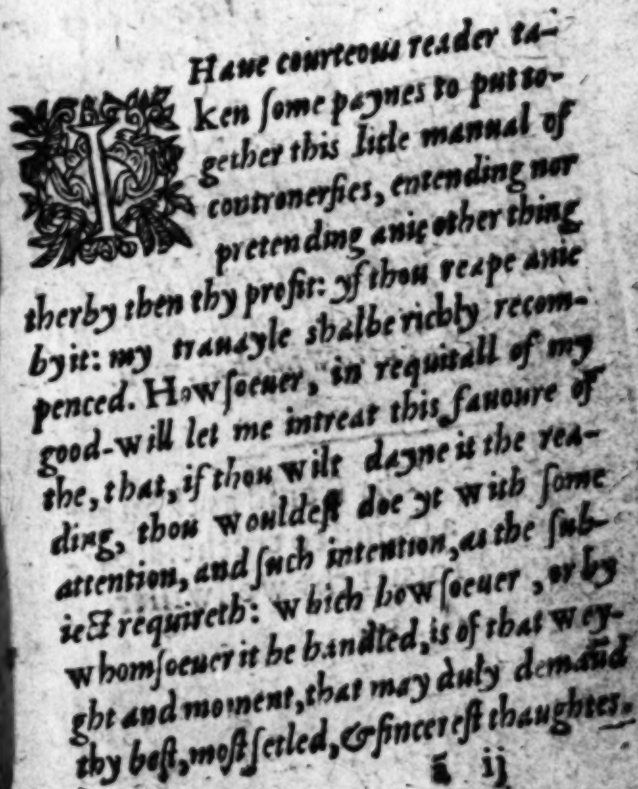 I Haue courteous reader ta-
ken ſome paynes to put to-
gether this litle manual of
controuerſies, entending nor
pretending anie other thing
therby then thy profit: yf thou reape anie
by it: my trauayle shalbe richly recom-
penced. Howſoeuer, in requitall of my
good-will let me intreat this fauoure of
the, that, if thou wilt dayne it the rea-
ding, thou wouldeſt doe yt with ſome
attention, and ſuch intention, as the ſub-
iect requireth: which howſoeuer, or by
whomſoeuer it be handled, is of that wey-
ght and moment, that may duly demaūd
thy beſt, moſt ſetled, & ſincereſt thaughtes.
ā ij